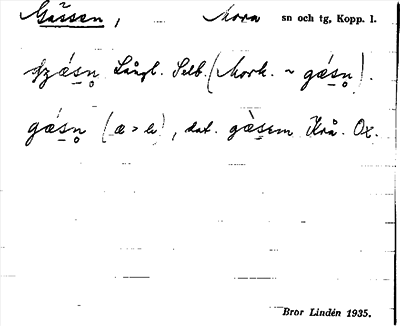 Gåssen, Mora sn och tg, Kopp. l.
gǽsn̥ Långl. Selb. (Mork. ~ gǽsn̥).
gǽsn̥ (æ > e), dat. gæ̀sem Krå. Ox.
Bror Lindén 1935.